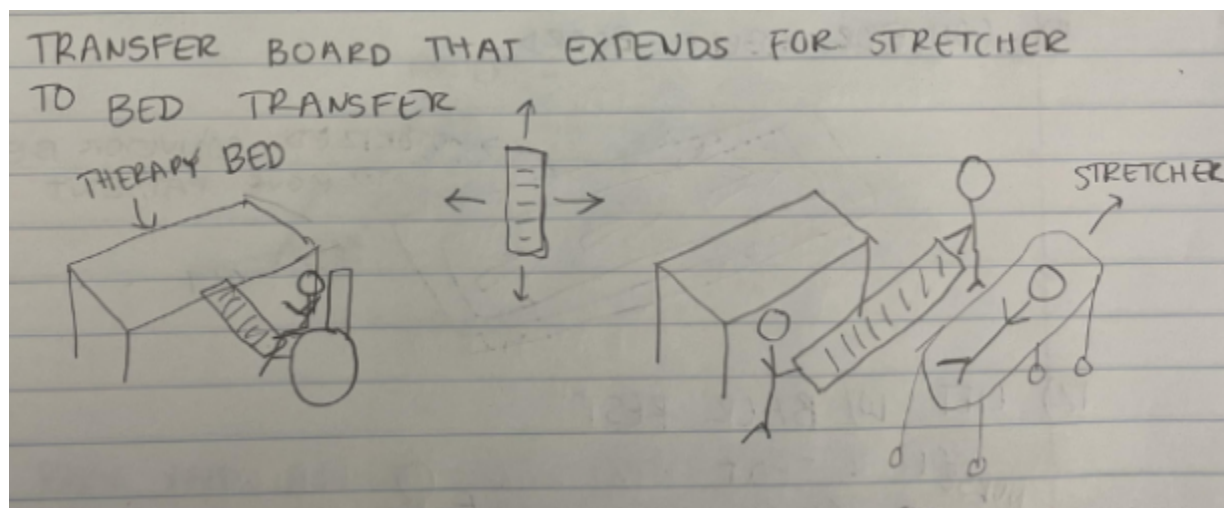 TRANSFER BOARD THAT EXTENDS FOR STRETCHER
TO BED TRANSFER
THERAPY BED
STRETCHER